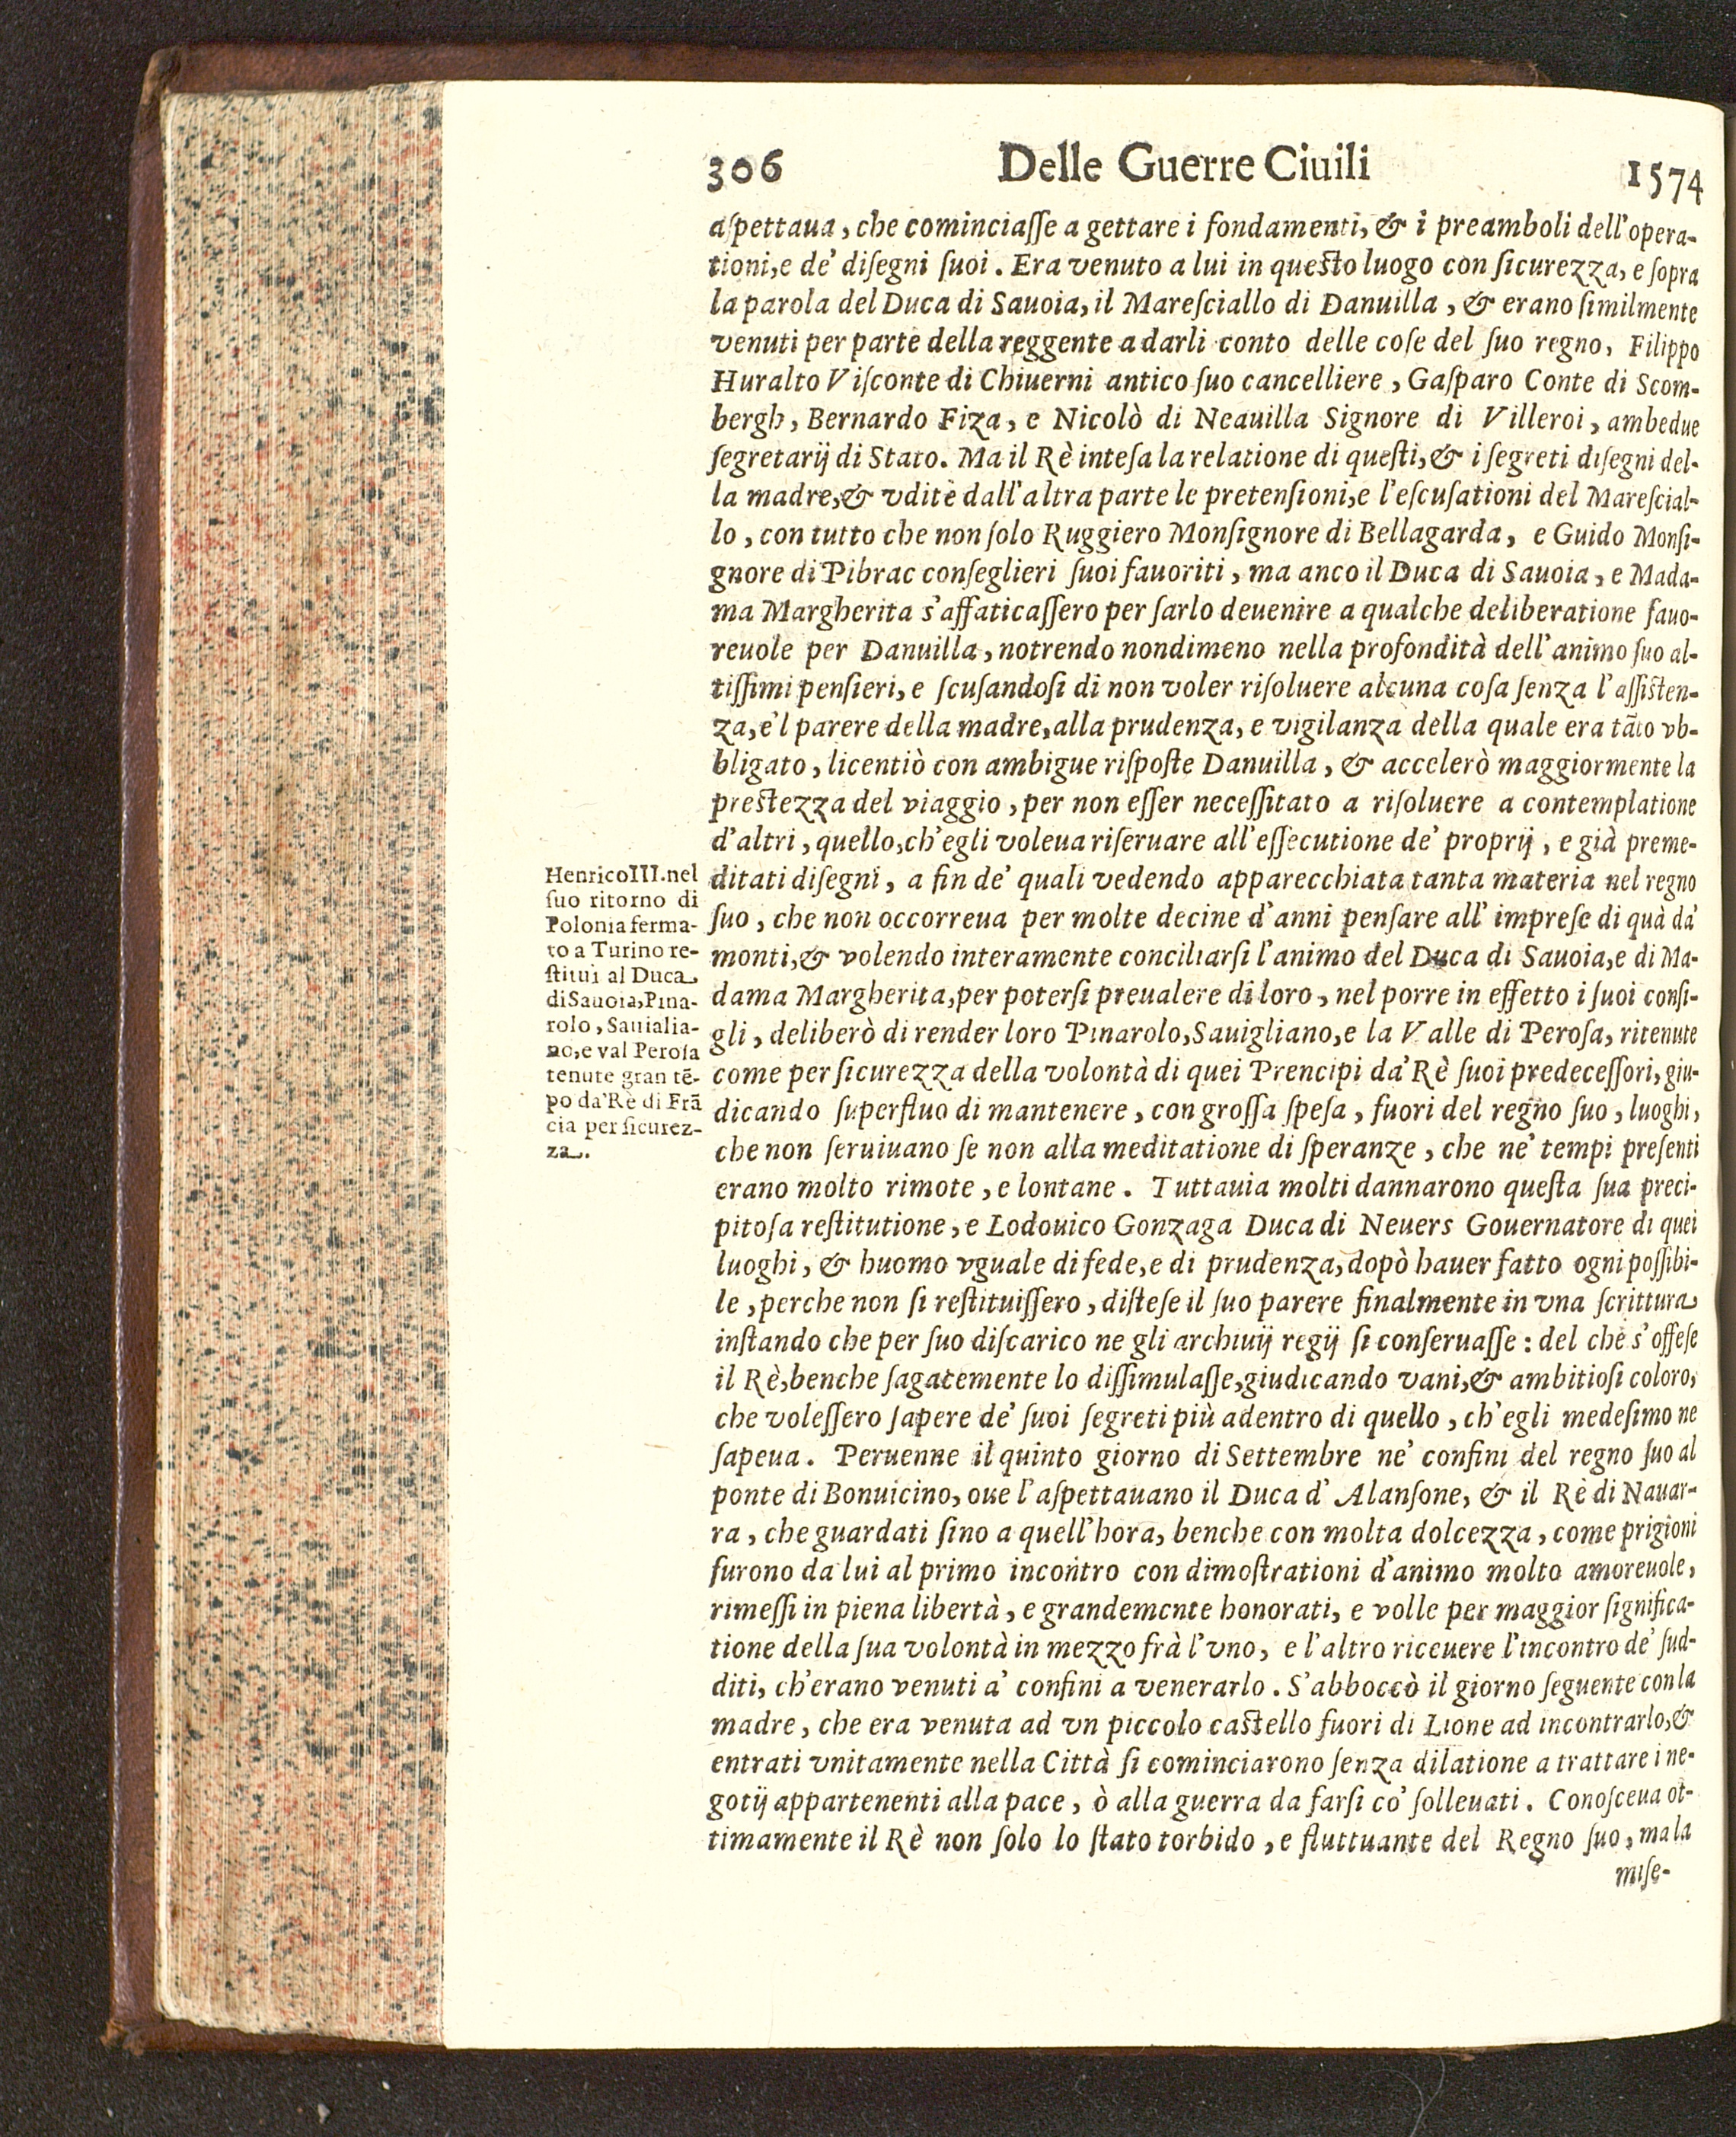 306 Delle Guerre Ciuili 1574
aſpettaua, che cominciaſſe a gettare i fondamenti, & i preamboli dell'opera-
tioni,e de' diſegni ſuoi. Era venuto a lui in queſto luogo con ſicurezza, e ſopra
la parola del Duca di Sauoia, il Mareſciallo di Danuilla, & erano ſimilmente
venuti per parte della reggente a darli conto delle coſe del ſuo regno, Filippo
Huralto Viſconte di Chiuerni antico ſuo cancelliere, Gaſparo Conte di Scom-
bergh, Bernardo Fiza, e Nicolò di Neauilla Signore di Villeroi, ambedue
ſegretarij di Stato. Ma il Rè inteſa la relatione di queſti,& i ſegreti diſegni del-
la madre,& vdite dall'altra parte le pretenſioni,e l'eſcuſationi del Mareſcial-
lo, con tutto che non ſolo Ruggiero Monſignore di Bellagarda, e Guido Monſi-
gnore di Pibrac conſeglieri ſuoi fauoriti, ma anco il Duca di Sauoia, e Mada-
ma Margherita s'affaticaſſero per farlo deuenire a qualche deliberatione fauo-
reuole per Danuilla, notrendo nondimeno nella profondità dell'animo ſuo al-
tiſſimi penſieri, e ſcuſandoſi di non voler riſoluere alcuna coſa ſenza l'aſſiſten-
za, e'l parere della madre, alla prudenza, e vigilanza della quale era tãto vb-
bligato, licentiò con ambigue riſpoſte Danuilla, & accelerò maggiormente la
preſtezza del viaggio, per non eſſer neceſſitato a riſoluere a contemplatione
d'altri, quello, ch'egli voleua riſeruare all'eſſecutione de' proprij, e già preme-
ditati diſegni, a fin de' quali vedendo apparecchiata tanta materia nel regno
ſuo, che non occorreua per molte decine d'anni penſare all'impreſe di quà da'
monti,& volendo interamente conciliarſi l'animo del Duca di Sauoia,e di Ma-
dama Margherita,per poterſi preualere di loro, nel porre in effetto i ſuoi conſi-
gli, deliberò di render loro Pinarolo,Sauigliano,e la Valle di Peroſa, ritenute
come per ſicurezza della volontà di quei Prencipi da'Rè ſuoi predeceſſori, giu-
dicando ſuperfluo di mantenere, con groſſa ſpeſa, fuori del regno ſuo, luoghi,
che non ſeruiuano ſe non alla meditatione di ſperanze, che ne' tempi preſenti
erano molto rimote, e lontane. Tuttauia molti dannarono queſta ſua preci-
pitoſa reſtitutione, e Lodouico Gonzaga Duca di Neuers Gouernatore di quei
luoghi, & huomo vguale di fede,e di prudenza,dopò hauer fatto ogni poſſibi-
le, perche non ſi reſtituiſſero, diſteſe il ſuo parere finalmente in vna ſcrittura
inſtando che per ſuo diſcarico ne gli archiuij regij ſi conſeruaſſe: del che s'offeſe
il Rè,benche ſagacemente lo diſſimulaſſe,giudicando vani,& ambitioſi coloro,
che voleſſero ſapere de' ſuoi ſegreti più adentro di quello, ch'egli medeſimo ne
ſapeua. Peruenne il quinto giorno di Settembre ne' confini del regno ſuo al
ponte di Bonuicino, oue l'aſpettauano il Duca d'Alanſone, & il Rè di Nauar-
ra, che guardati ſino a quell'hora, benche con molta dolcezza, come prigioni
furono da lui al primo incontro con dimoſtrationi d'animo molto amoreuole,
rimeſſi in piena libertà, e grandemente honorati, e volle per maggior ſignifica-
tione della ſua volontà in mezzo frà l'vno, e l'altro riceuere l'incontro de' ſud-
diti, ch'erano venuti a' confini a venerarlo. S'abboccò il giorno ſeguente con la
madre, che era venuta ad vn piccolo caſtello fuori di Lione ad incontrarlo,&
entrati vnitamente nella Città ſi cominciarono ſenza dilatione a trattare i ne-
gotij appartenenti alla pace, ò alla guerra da farſi co' ſolleuati. Conoſceua ot-
timamente il Rè non ſolo lo ſtato torbido, e fluttuante del Regno ſuo, ma la
miſe-
Henrico III. nel
ſuo ritorno di
Polonia ferma-
to a Turino re-
ſtituì al Duca
di Sauoia, Pina-
rolo, Sauialia-
no,e val Peroſa
tenute gran tẽ-
po da'Rè di Frã
cia per ſicurez-
za.